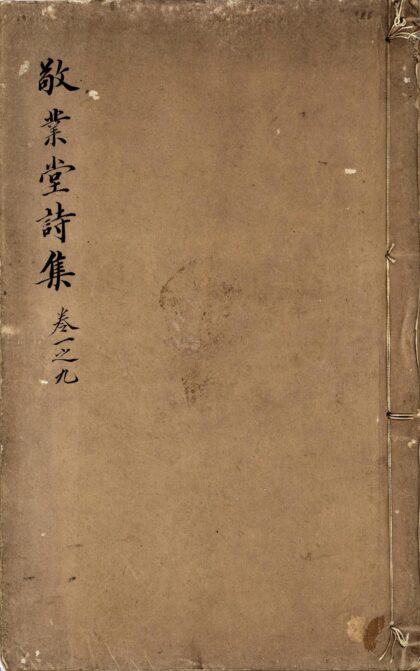 敬業堂詩集
卷一之九